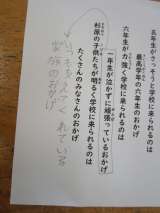 五年生がさっそうと学校に来られるのは
最高学年の六年生のおかげ
六年生が力強く学校に来られるのは
一年生が泣かずに頑張っているおかげ
杉原の子供たちが明るく学校に来られるのは
たくさんのみなさんのおかげ
いつも支えてくれている
家族のおかげ